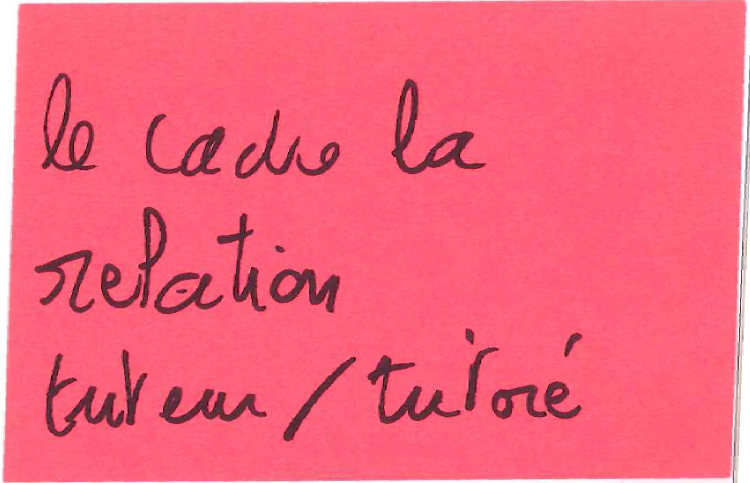 le cadre la
relation
tuteur / tutoré